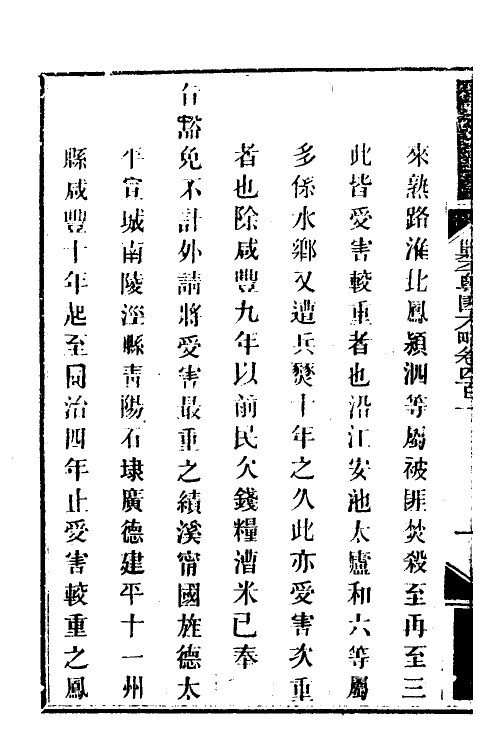 卷四百一
來熟路淮北鳳潁泗等屬被匪焚殺至再至三
此皆受害較重者也沿江安池太廬和六等屬
多係水鄉又遭兵燹十年之久此亦受害次重
者也除咸豐九年以前民欠錢糧漕米已奉
旨豁免不計外請將受害最重之績溪甯國旌德太
平宣城南陵涇縣青陽石埭廣德建平十一州
縣咸豐十年起至同治四年止受害較重之鳳